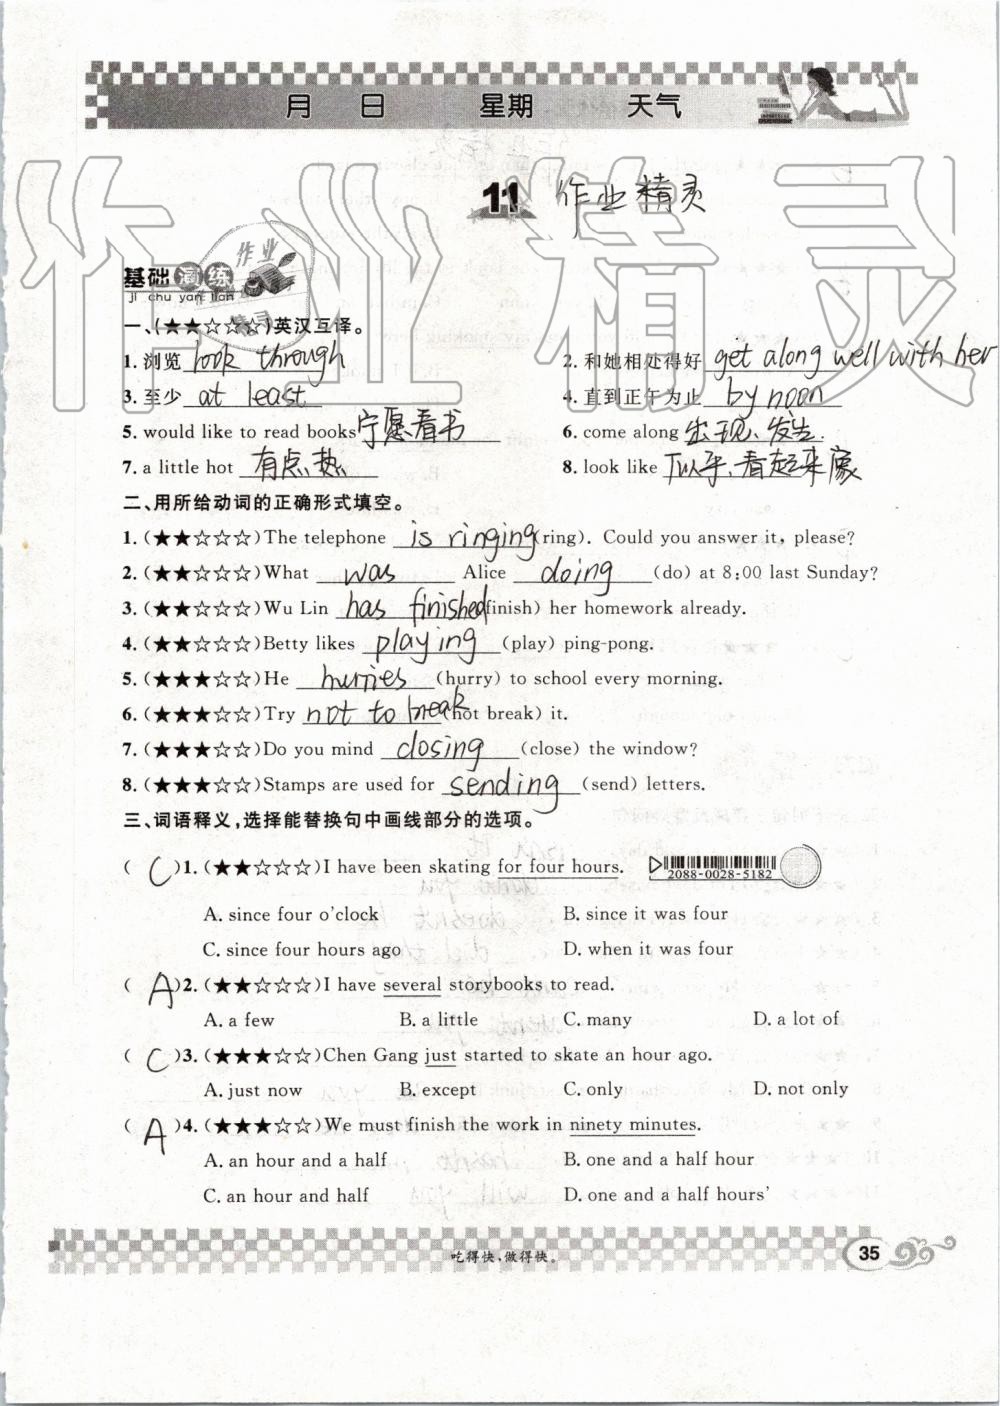 月 日 星期 天气
11 作业精灵
基础演练
jī chu yan lian
一、(★★☆☆☆)英汉互译。
1. 浏览 look through 2. 和她相处得好 get along well with her
3. 至少 at least 4. 直到正午为止 by noon
5. would like to read books 宁愿看书 6. come along 出现、发生.
7. a little hot 有点热 8. look like 似乎、看起来像
二、用所给动词的正确形式填空。
1. (★★☆☆☆)The telephone is ringing (ring). Could you answer it, please?
2. (★★☆☆☆)What was Alice doing (do) at 8:00 last Sunday?
3. (★★☆☆☆)Wu Lin has finished (finish) her homework already.
4. (★★☆☆☆)Betty likes playing (play) ping-pong.
5. (★★★☆☆)He hurries (hurry) to school every morning.
6. (★★★☆☆)Try not to break (not break) it.
7. (★★★☆☆)Do you mind closing (close) the window?
8. (★★★☆☆)Stamps are used for sending (send) letters.
三、词语释义,选择能替换句中画线部分的选项。
( C )1. (★★☆☆☆)I have been skating for four hours. 2088-0028-5182
A. since four o'clock B. since it was four
C. since four hours ago D. when it was four
( A )2. (★★☆☆☆)I have several storybooks to read.
A. a few B. a little C. many D. a lot of
( C )3. (★★★☆☆)Chen Gang just started to skate an hour ago.
A. just now B. except C. only D. not only
( A )4. (★★★☆☆)We must finish the work in ninety minutes.
A. an hour and a half B. one and a half hour
C. an hour and half D. one and a half hours'
吃得快,做得快。 35
作业精灵
作业
精灵